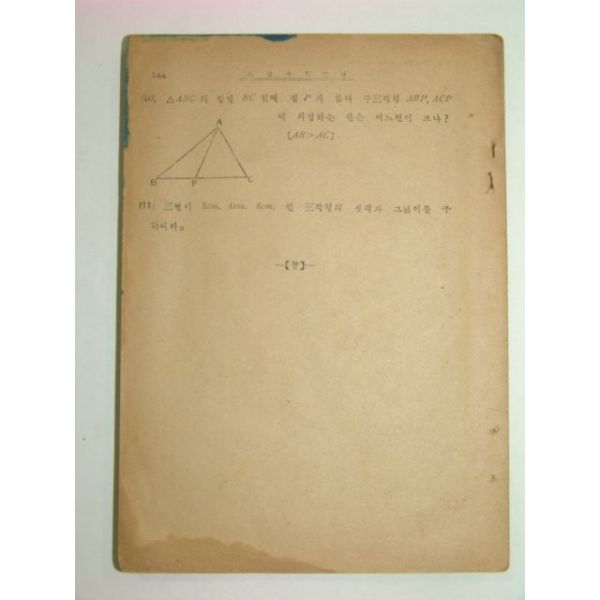 144
(10) △ABC의 밑변 BC 위에 점 P가 있다 두三각형 ABP, ACP
에 외접하는 원은 어느편이 크냐?
[AB>AC]
A
B P C
(11) 三변이 4cm. 6cm. 인 三각형의 셋각과 그넓이를 구
하여라。
—【끝】—